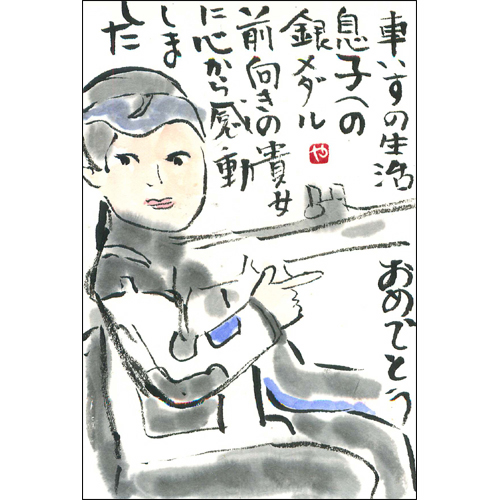 車いすの生活
息子への
銀メダル
前向きの貴女
に心から感動
しま
した
おめでとう
や